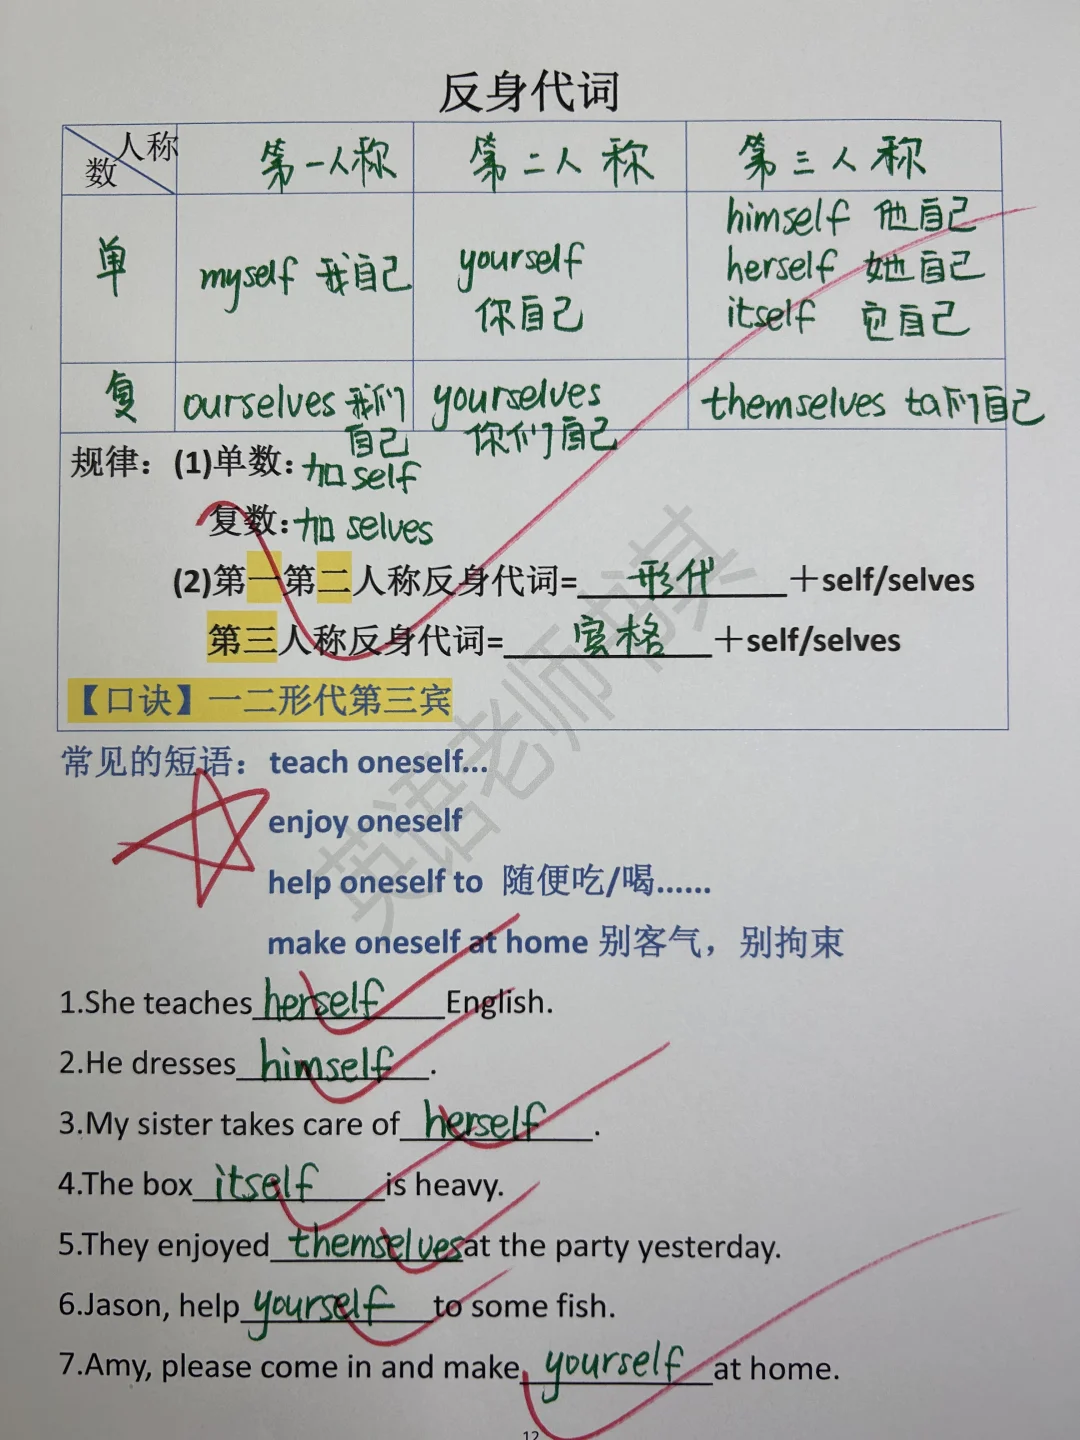 反身代词
人称
数
第一人称 第二人称 第三人称
单
myself 我自己
yourself
你自己
himself 他自己
herself 她自己
itself 它自己
复
ourselves 我们
自己
yourselves
你们自己
themselves ta们自己
规律：(1)单数：加self
复数：加selves
(2)第一第二人称反身代词=形代＋self/selves
第三人称反身代词=宾格＋self/selves
【口诀】一二形代第三宾
常见的短语：teach oneself...
enjoy oneself
help oneself to 随便吃/喝......
make oneself at home 别客气，别拘束
1.She teaches herself English.
2.He dresses himself.
3.My sister takes care of herself.
4.The box itself is heavy.
5.They enjoyed themselves at the party yesterday.
6.Jason, help yourself to some fish.
7.Amy, please come in and make yourself at home.
12